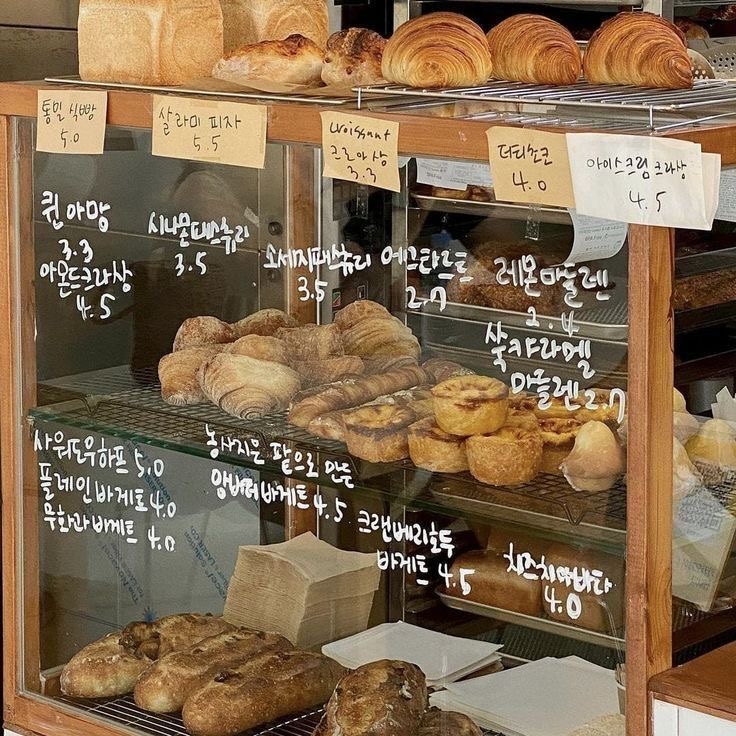 통밀 식빵
5.0
살라미 피자
5.5
croissant
크로아상
3.3
더티초코
4.0
아이스크림 크라상
4.5
퀸아망
3.3
아몬드크라상
4.5
시나몬페스츄리
3.5
소세지패스츄리
3.5
에그타르트
2.7
레몬마들렌
2.4
쑥캬라멜
마들렌 2.7
사워도우하프 5.0
플레인바게트 4.0
무화과바게트 4.0
농사지은 팥으로 만든
앙버터바게트 4.5
크랜베리호두
바게트 4.5
치즈치아바타
4.0